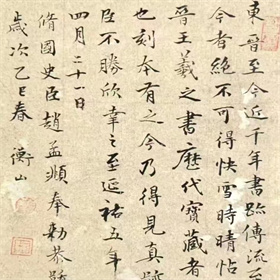 東晉至今近千年書跡傳流至
今者絕不可得快雪時晴帖
晉王羲之書歷代寶藏者
也刻本有之今乃得見真跡
臣不勝欣幸之至延祐五年
四月二十一日
脩國史臣趙孟頫奉勅恭題
歲次乙巳春 衡山